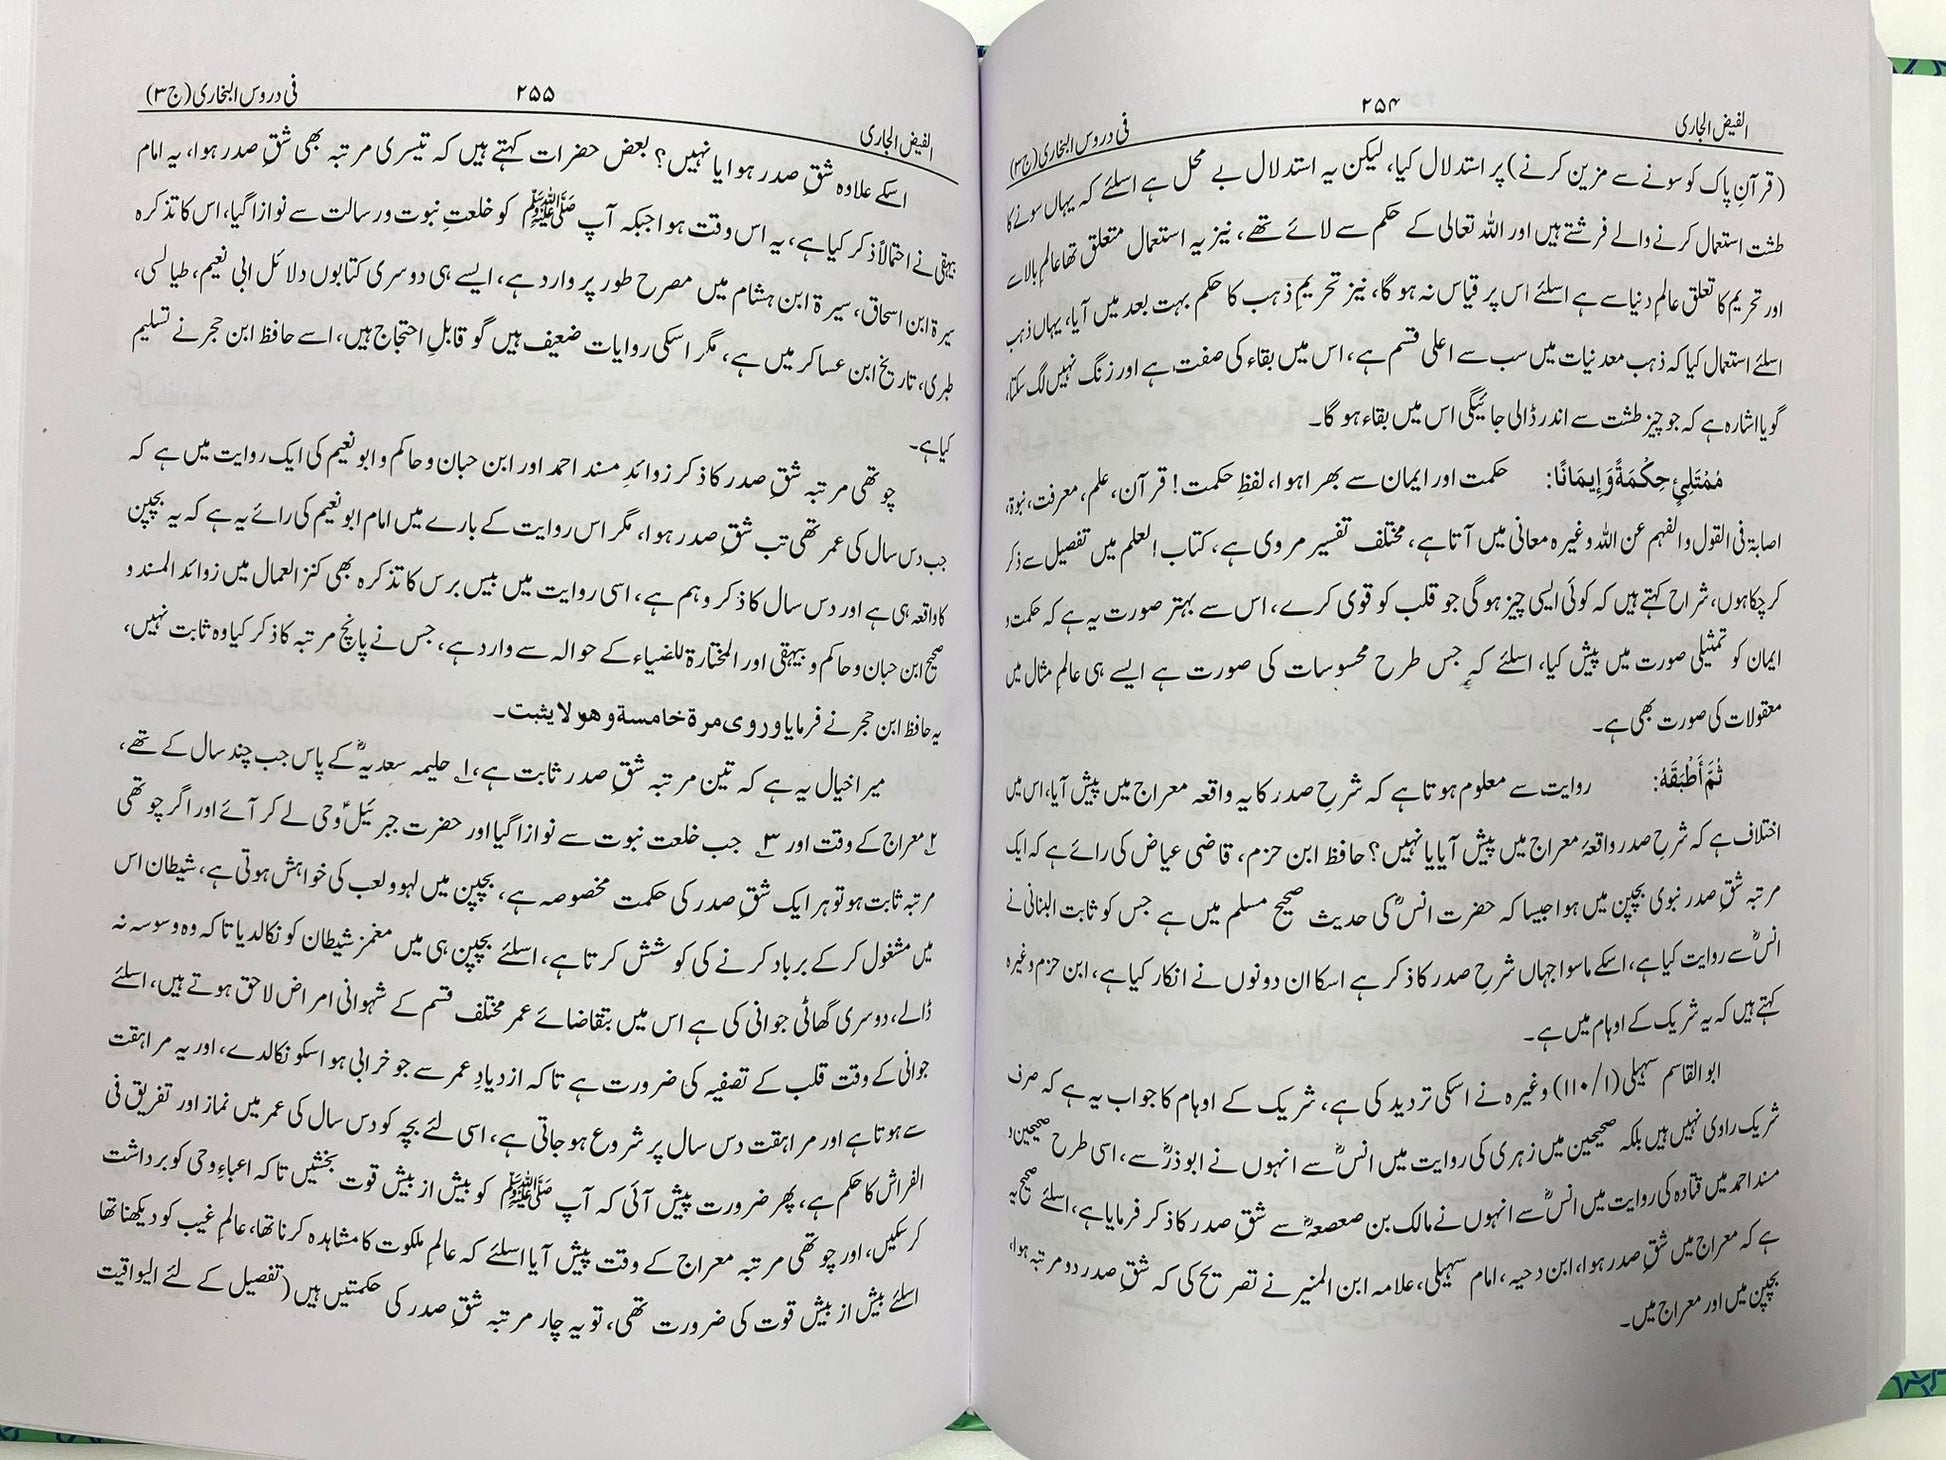 الفیض الجاری ۲۵۴ فی دروس البخاری (ج۳)
(قرآنِ پاک کو سونے سے مزین کرنے) پر استدلال کیا، لیکن یہ استدلال بے محل ہے اسلئے کہ یہاں سونے کا
طشت استعمال کرنے والے فرشتے ہیں اور اللہ تعالی کے حکم سے لائے تھے، نیز یہ استعمال متعلق تھا عالمِ بالا سے
اور تحریم کا تعلق عالمِ دنیا سے ہے اسلئے اس پر قیاس نہ ہو گا، نیز تحریمِ ذہب کا حکم بہت بعد میں آیا، یہاں ذہب
اسلئے استعمال کیا کہ ذہب معدنیات میں سب سے اعلی قسم ہے، اس میں بقاء کی صفت ہے اور زنگ نہیں لگ سکتا،
گویا اشارہ ہے کہ جو چیز طشت سے اندر ڈالی جائیگی اس میں بقاء ہو گا۔
مُمْتَلِئٍ حِكْمَةً وَإِيمَانًا: حکمت اور ایمان سے بھرا ہوا، لفظِ حکمت! قرآن، علم، معرفت، نبوۃ،
اصابۃ فی القول والفہم عن اللہ وغیرہ معانی میں آتا ہے، مختلف تفسیر مروی ہے، کتاب العلم میں تفصیل سے ذکر
کرچکا ہوں، شراح کہتے ہیں کہ کوئی ایسی چیز ہوگی جو قلب کو قوی کرے، اس سے بہتر صورت یہ ہے کہ حکمت و
ایمان کو تمثیلی صورت میں پیش کیا، اسلئے کہ جس طرح محسوسات کی صورت ہے ایسے ہی عالمِ مثال میں
معقولات کی صورت بھی ہے۔
ثُمَّ أَطْبَقَهُ: روایت سے معلوم ہوتا ہے کہ شرحِ صدر کا یہ واقعہ معراج میں پیش آیا، اس میں
اختلاف ہے کہ شرحِ صدر واقعۂ معراج میں پیش آیا یا نہیں؟ حافظ ابن حزم، قاضی عیاض کی رائے ہے کہ ایک
مرتبہ شقِ صدر نبوی بچپن میں ہوا جیسا کہ حضرت انسؓ کی حدیث صحیح مسلم میں ہے جس کو ثابت البنانی نے
انسؓ سے روایت کیا ہے، اسکے ماسوا جہاں شرحِ صدر کا ذکر ہے اسکا ان دونوں نے انکار کیا ہے، ابن حزم وغیرہ
کہتے ہیں کہ یہ شریک کے اوہام میں ہے۔
ابو القاسم سہیلی (۱/۱۱۰) وغیرہ نے اسکی تردید کی ہے، شریک کے اوہام کا جواب یہ ہے کہ صرف
شریک راوی نہیں ہیں بلکہ صحیحین میں زہری کی روایت میں انسؓ سے انہوں نے ابوذرؓ سے، اسی طرح صحیحین و
مسند احمد میں قتادہ کی روایت میں انسؓ سے انہوں نے مالک بن صعصعہؓ سے شقِ صدر کا ذکر فرمایا ہے، اسلئے صحیح یہ
ہے کہ معراج میں شقِ صدر ہوا، ابن دحیہ، امام سہیلی، علامہ ابن المنیر نے تصریح کی کہ شقِ صدر دو مرتبہ ہوا،
بچپن میں اور معراج میں۔
الفیض الجاری ۲۵۵ فی دروس البخاری (ج۳)
اسکے علاوہ شقِ صدر ہوا یا نہیں؟ بعض حضرات کہتے ہیں کہ تیسری مرتبہ بھی شقِ صدر ہوا، یہ امام
بیہقی نے احتمالاً ذکر کیا ہے، یہ اس وقت ہوا جبکہ آپ ﷺ کو خلعتِ نبوت ورسالت سے نوازا گیا، اس کا تذکرہ
سیرۃ ابن اسحاق، سیرۃ ابن ہشام میں مصرح طور پر وارد ہے، ایسے ہی دوسری کتابوں دلائل ابی نعیم، طیالسی،
طبری، تاریخ ابن عساکر میں ہے، مگر اسکی روایات ضعیف ہیں گو قابلِ احتجاج ہیں، اسے حافظ ابن حجر نے تسلیم
کیا ہے۔
چوتھی مرتبہ شقِ صدر کا ذکر زوائدِ مسند احمد اور ابن حبان وحاکم وابو نعیم کی ایک روایت میں ہے کہ
جب دس سال کی عمر تھی تب شقِ صدر ہوا، مگر اس روایت کے بارے میں امام ابو نعیم کی رائے یہ ہے کہ یہ بچپن
کا واقعہ ہی ہے اور دس سال کا ذکر وہم ہے، اسی روایت میں بیس برس کا تذکرہ بھی کنز العمال میں زوائد المسند و
صحیح ابن حبان وحاکم وبیہقی اور المختارۃ للضیاء کے حوالہ سے وارد ہے، جس نے پانچ مرتبہ کا ذکر کیا وہ ثابت نہیں،
یہ حافظ ابن حجر نے فرمایا وروی مرة خامسة وهو لا يثبت۔
میرا خیال یہ ہے کہ تین مرتبہ شقِ صدر ثابت ہے، ۱ حلیمہ سعدیہؓ کے پاس جب چند سال کے تھے،
۲ معراج کے وقت اور ۳ جب خلعت نبوت سے نوازا گیا اور حضرت جبرئیلؑ وحی لے کر آئے اور اگر چوتھی
مرتبہ ثابت ہو تو ہر ایک شقِ صدر کی حکمت مخصوصہ ہے، بچپن میں لہو ولعب کی خواہش ہوتی ہے، شیطان اس
میں مشغول کر کے برباد کرنے کی کوشش کرتا ہے، اسلئے بچپن ہی میں مغمز شیطان کو نکالدیا تاکہ وہ وسوسہ نہ
ڈالے، دوسری گھاٹی جوانی کی ہے اس میں بتقاضائے عمر مختلف قسم کے شہوانی امراض لاحق ہوتے ہیں، اسلئے
جوانی کے وقت قلب کے تصفیہ کی ضرورت ہے تاکہ ازدیادِ عمر سے جو خرابی ہو اسکو نکالدے، اور یہ مراہقت
سے ہوتا ہے اور مراہقت دس سال پر شروع ہو جاتی ہے، اسی لئے بچہ کو دس سال کی عمر میں نماز اور تفریق فی
الفراش کا حکم ہے، پھر ضرورت پیش آئی کہ آپ ﷺ کو بیش از بیش قوت بخشیں تاکہ اعباءِ وحی کو برداشت
کرسکیں، اور چوتھی مرتبہ معراج کے وقت پیش آیا اسلئے کہ عالمِ ملکوت کا مشاہدہ کرنا تھا، عالمِ غیب کو دیکھنا تھا
اسلئے بیش از بیش قوت کی ضرورت تھی، تو یہ چار مرتبہ شقِ صدر کی حکمتیں ہیں (تفصیل کے لئے الیواقیت